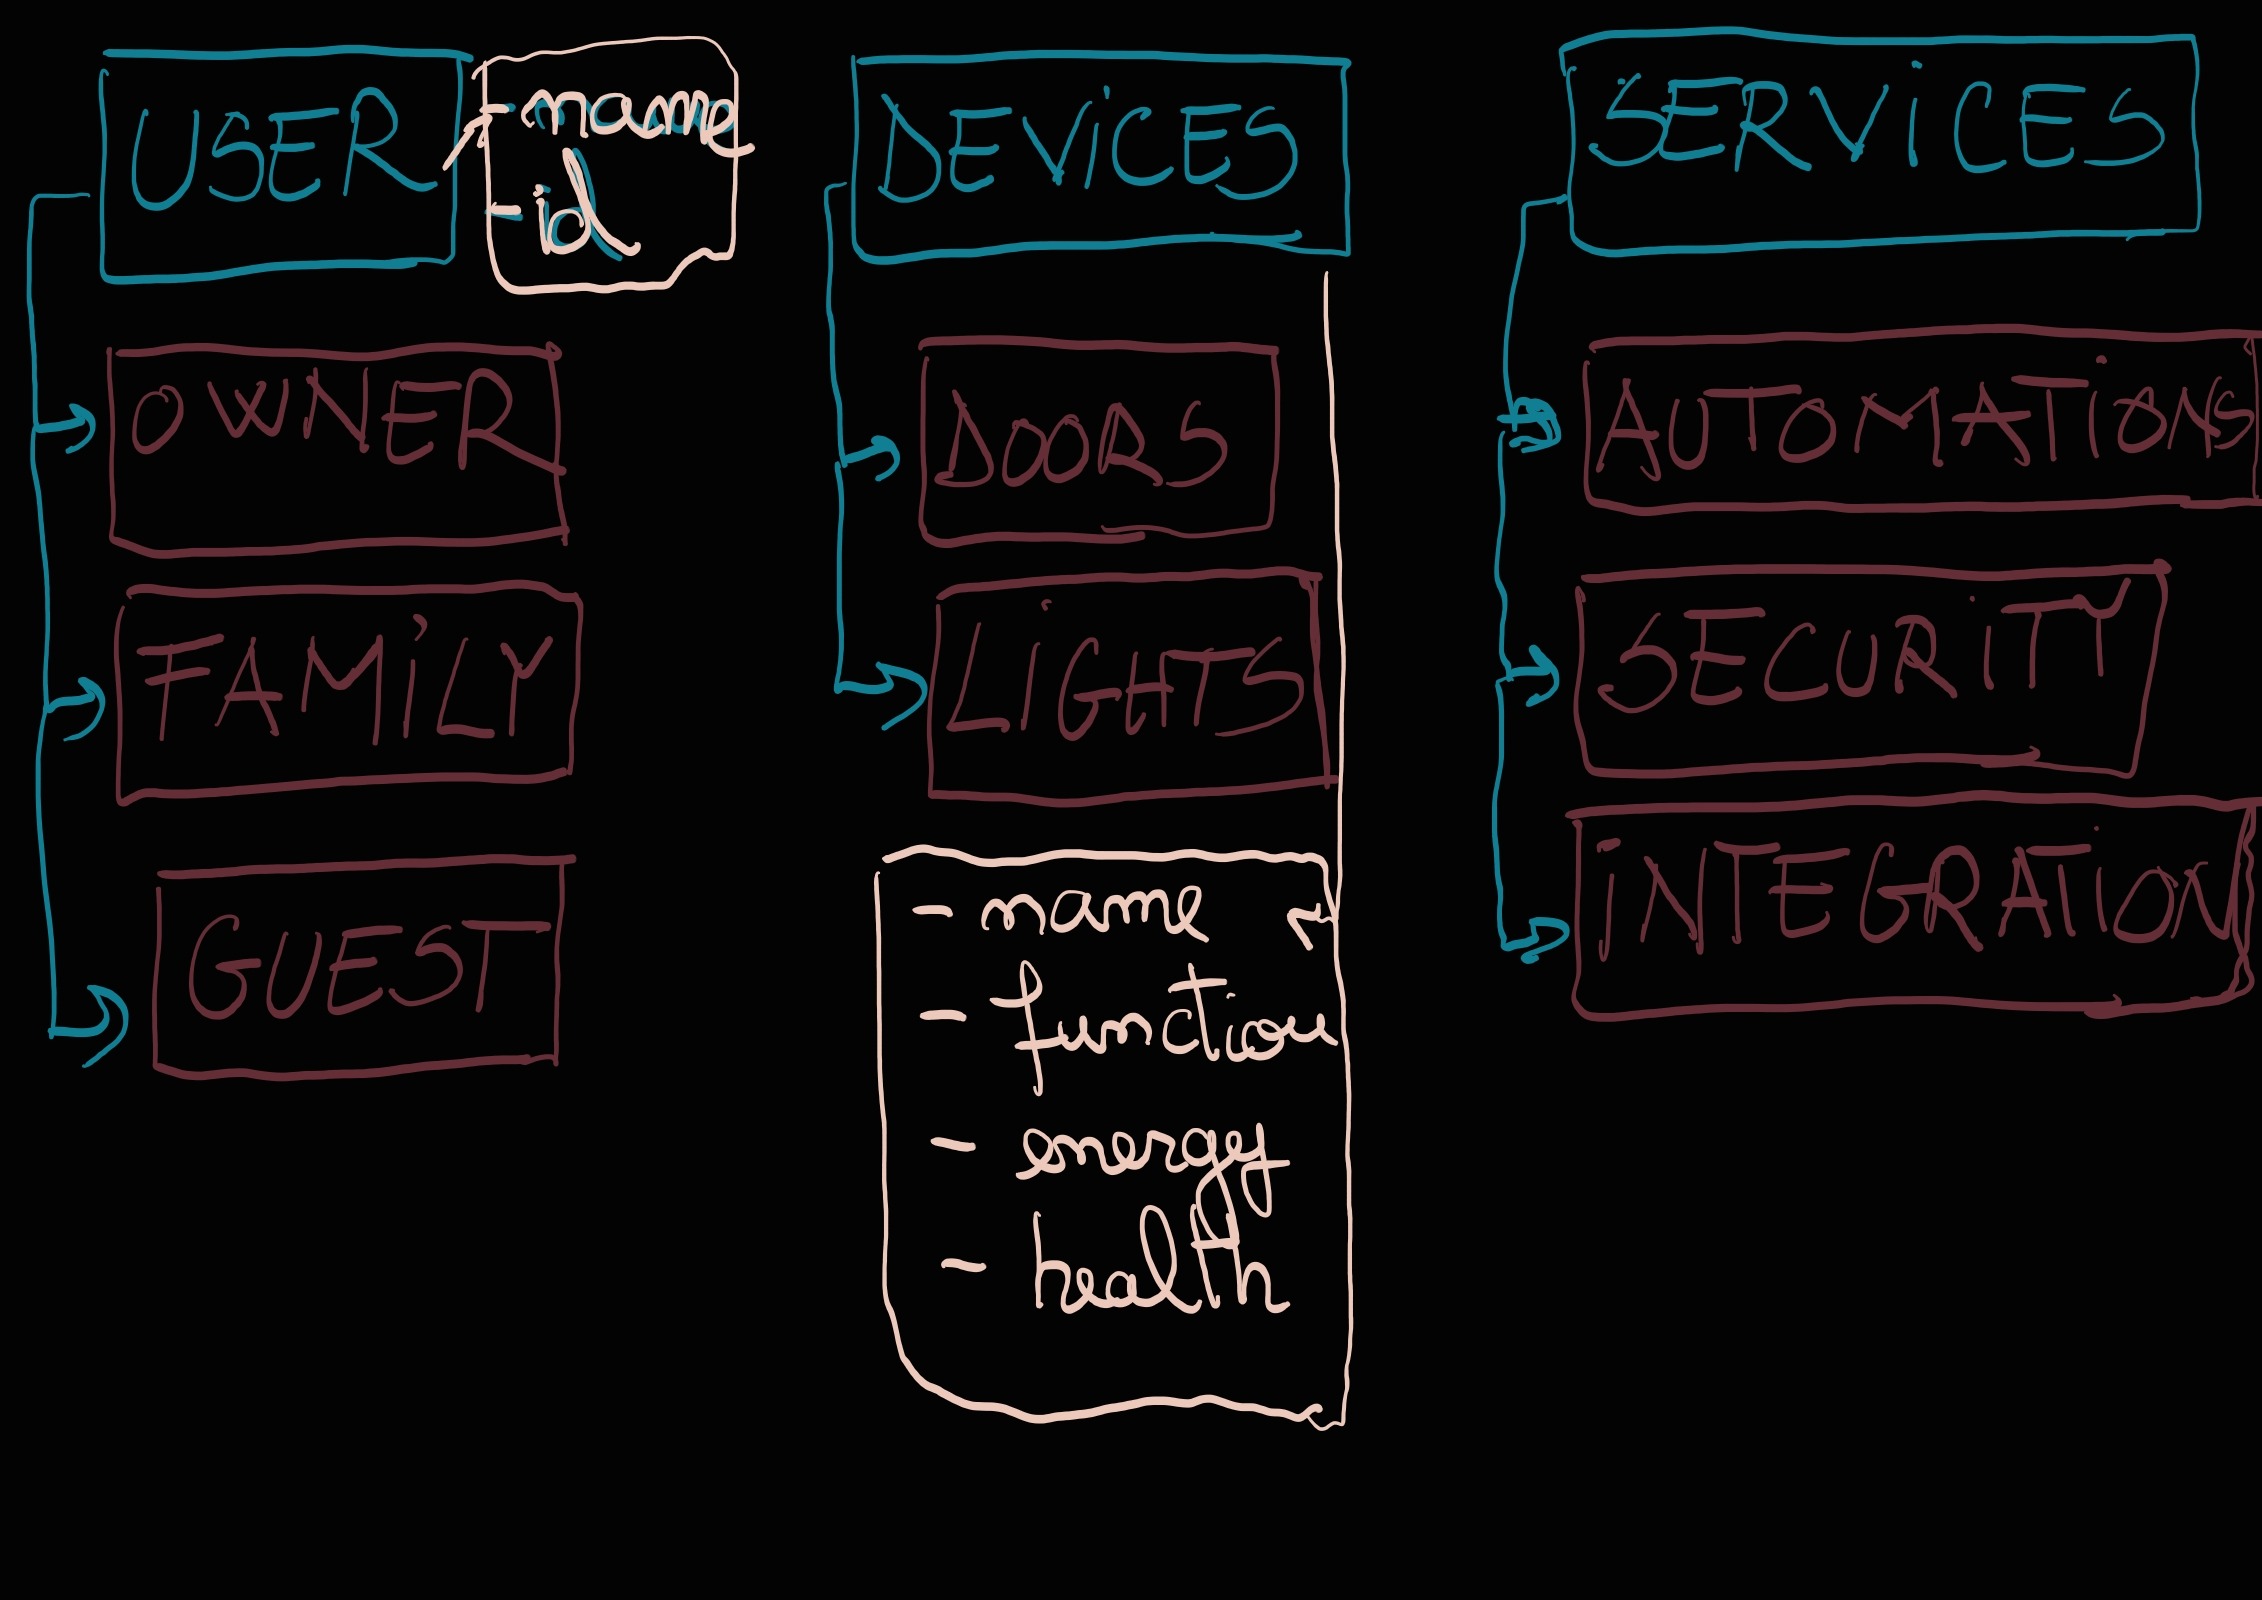 USER
- name
- id
OWNER
FAMiLY
GUEST
DEViCES
DOORS
LiGHTS
- name
- function
- energy
- health
SERViCES
AUTOMATiONS
SECURiTY
iNTEGRATiON